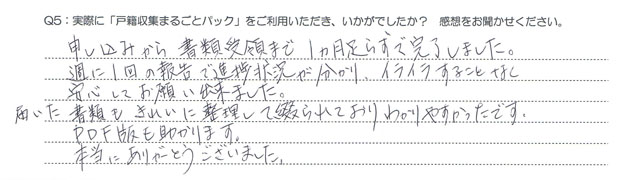 Q5：実際に「戸籍収集まるごとパック」をご利用いただき、いかがでしたか？ 感想をお聞かせください。
申し込みから書類受領まで1ヵ月足らずで完了しました。
週に1回の報告で進捗状況が分かり、イライラすることなく
安心してお願い出来ました。
届いた書類もきれいに整理して綴られておりわかりやすかったです。
PDF版も助かります。
本当にありがとうございました。